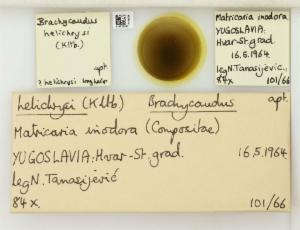 Brachycaudus
helichrysi
(Kltb.)
apt.
? helichrysi
Matricaria inodora
YUGOSLAVIA:
Hvar-St.grad.
16.5.1964.
leg N. Tanasijević.,
84x. 101/66
helichrysi (Kltb) Brachycaudus apt.
Matricaria inodora (Compositae)
YUGOSLAVIA: Hvar-St.grad. 16.5.1964.
leg N. Tanasijević
84 x. 101/66